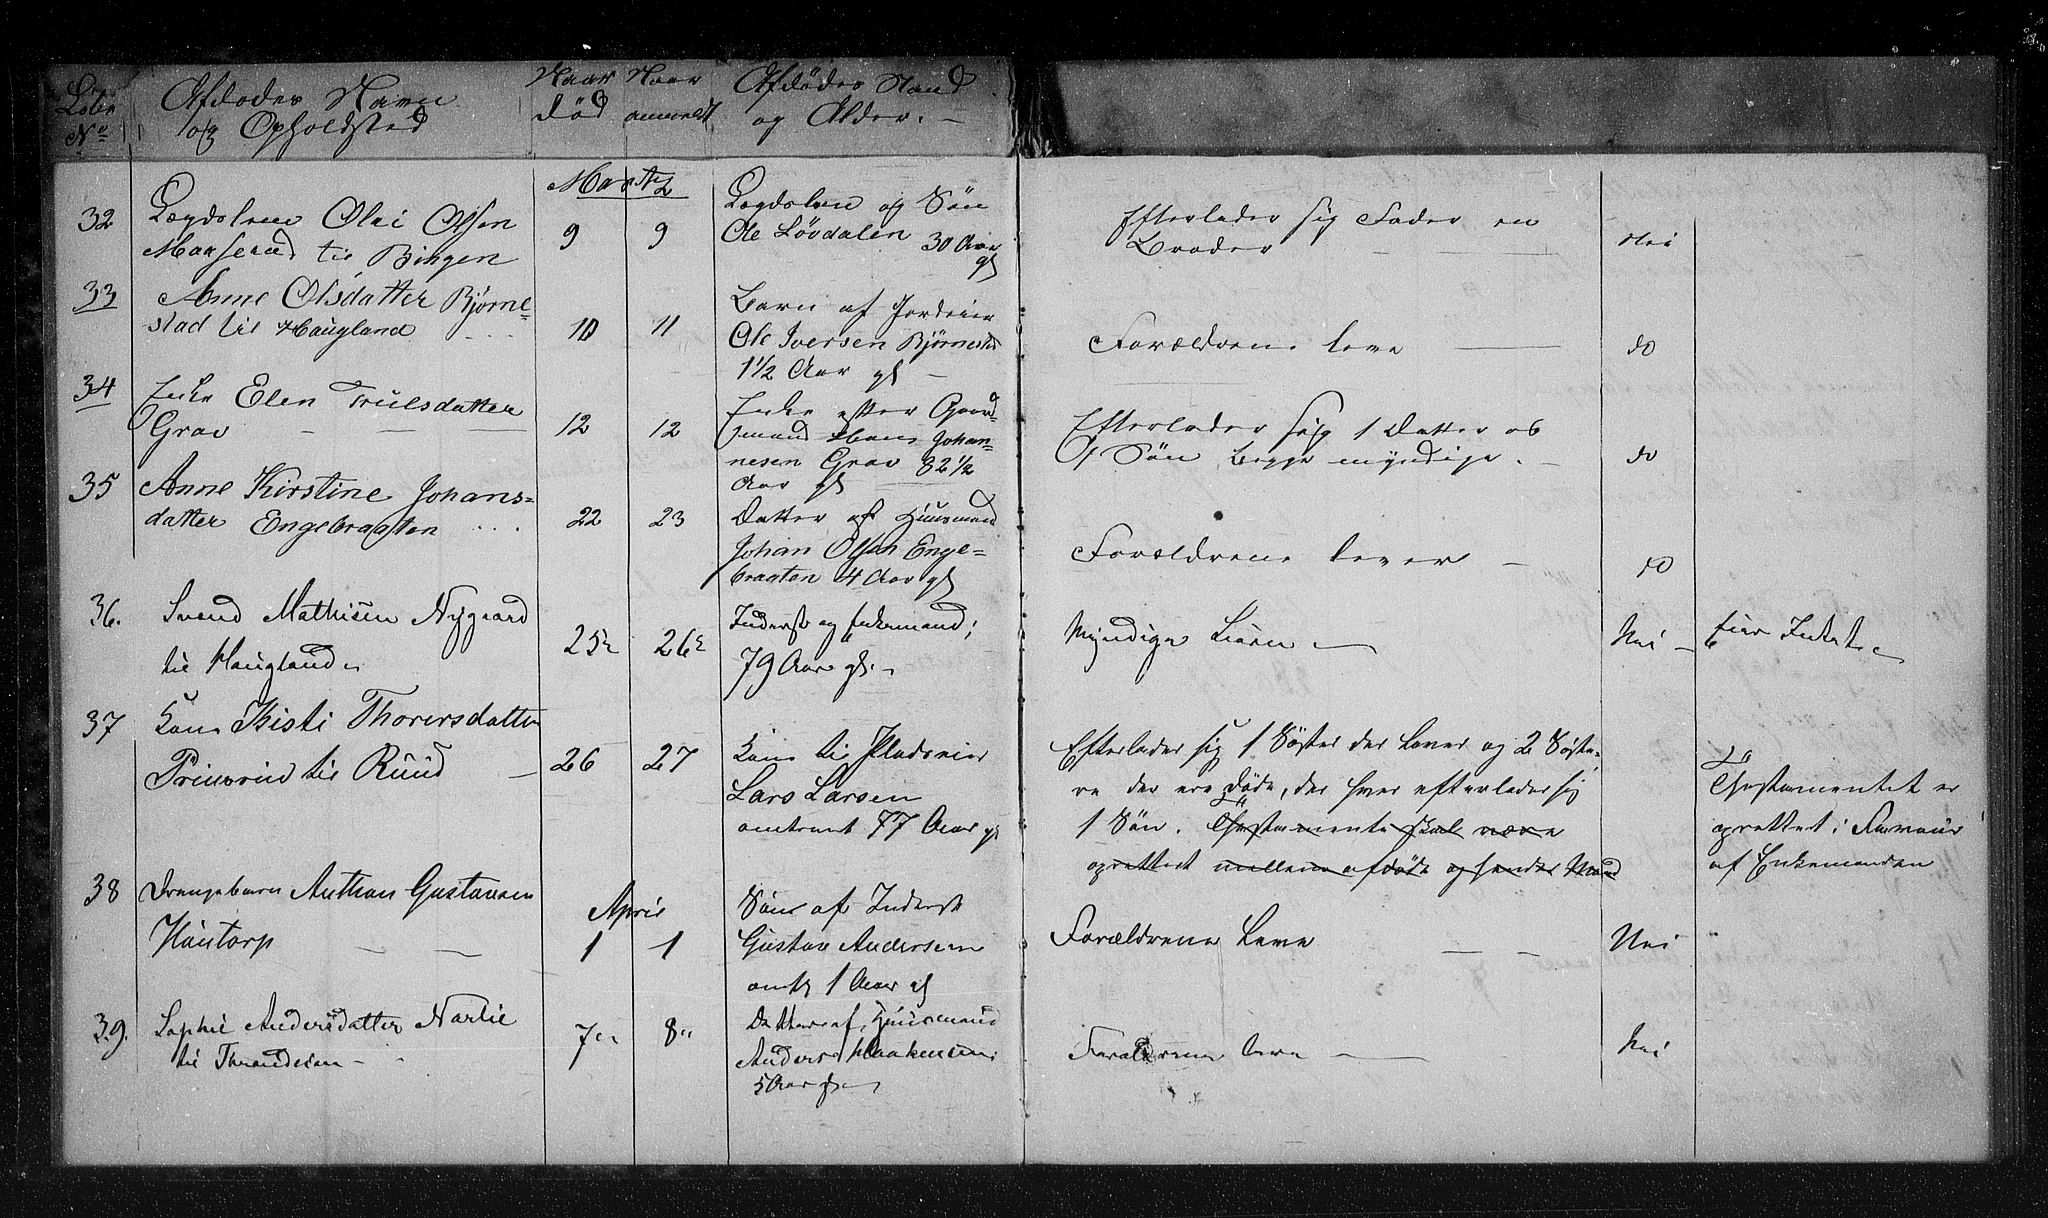 Løbe No
Afdødes Navn
og Opholdsted
Naar død
Naar anmeldt
Afdødes Stand
og Alder. –
Marts
32
Lægdslem Olai Olsen
Maaserud til Bingen
9
9
Lægdslem og Søn
Ole Løvdalen 30 Aar
gl
Efterlader sig Fader en
Broder
Nei
33
Anne Olsdatter Bjørne-
stad til Haugland
10
11
Barn af Gardeier
Ole Iversen Bjørnestad
1½ Aar gl –
Forældrene leve
do
34
Enke Elen Trulsdatter
Grav
12
12
Enke efter Gaard-
mand Hans Johan-
nesen Grav 82½
Aar gl
Efterlader sig 1 Datter og
1 Søn begge myndige. –
do
35
Anne Kirstine Johans-
datter Engebraaten
22
23
Datter af Huusmand
Johan Olsen Enge-
braaten 4 Aar gl
Forældrene lever –
do
36.
Svend Mathisen Nygaard
til Haugland
25
26
Inderst og Enkemand;
79 Aar gl. –
Myndige Børn –
Nei –
Eier Intet –
37
Kone Kisti Thorersdatter
Prinsrud til Ruud –
26
27
Kone til Pladseier
Lars Larsen
omtrent 77 Aar gl
Efterlader sig 1 Søster der lever og 2 Søste-
re der ere døde, der hver efterlader sig
1 Søn. Testamente skal være
oprettet mellem afdøde og hendes Mand
Testamentet er
oprettet i Faveur
af Enkemanden
38
Drengebarn Anthon Gustavsen
Hantorp
April
1
1
Søn af Inderst
Gustav Andersen
omtr 1 Aar gl
Forældrene leve
Nei
"
39.
Sophie Andersdatter Narlie
til
7
8
Datter af Huusmand
Anders Haakensen
5 Aar gl –
Forældrene leve –
Nei